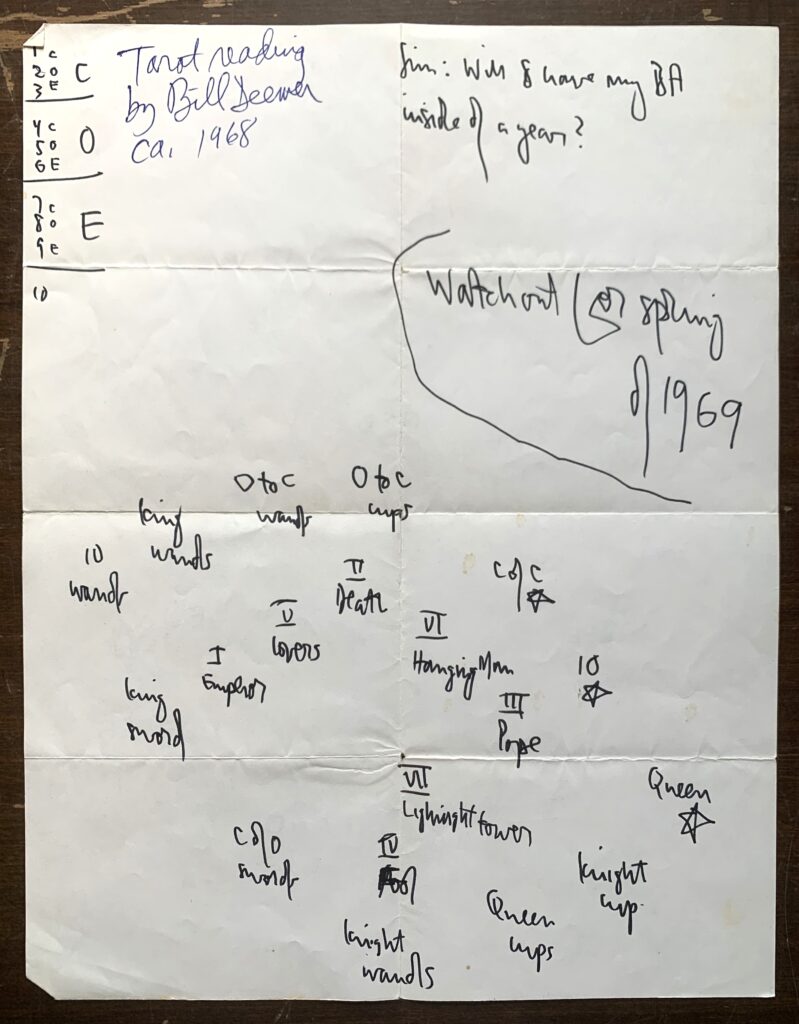 1 C
2 O C
3 E
4 C
5 O O
6 E
7 C
8 O E
9 E
10
Tarot reading
by Bill Deemer
ca. 1968
Jim: Will I have my BA
inside of a year?
Watch out for spring
of 1969
O to C
wands
O to C
cups
king
wands
10
wands
II
Death
V
Lovers
I
Emperor
king
sword
C of C
☆
VI
Hanging Man
10
☆
III
Pope
VII
Lighnight tower
Queen
☆
C of O
swords
IV
Fool
knight
cup.
Queen
cups
knight
wands